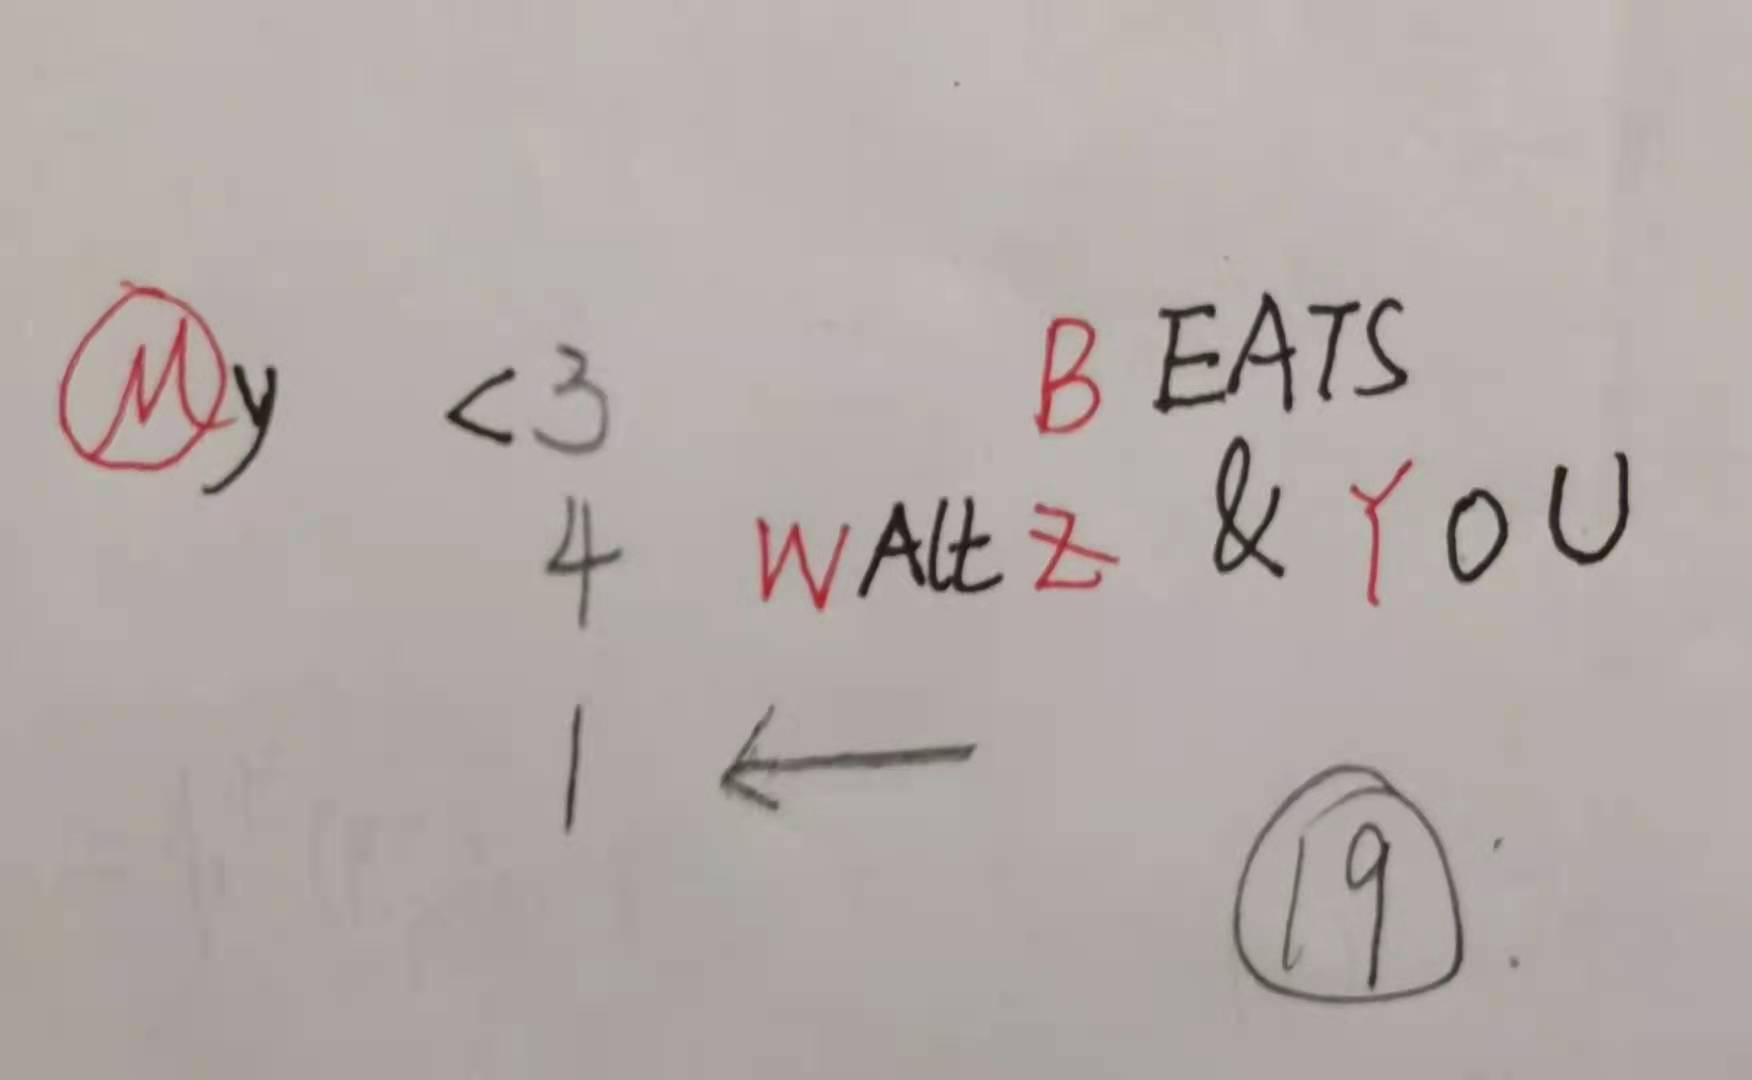 My <3 BEATS
4 WAltZ & YOU
1 ←
19